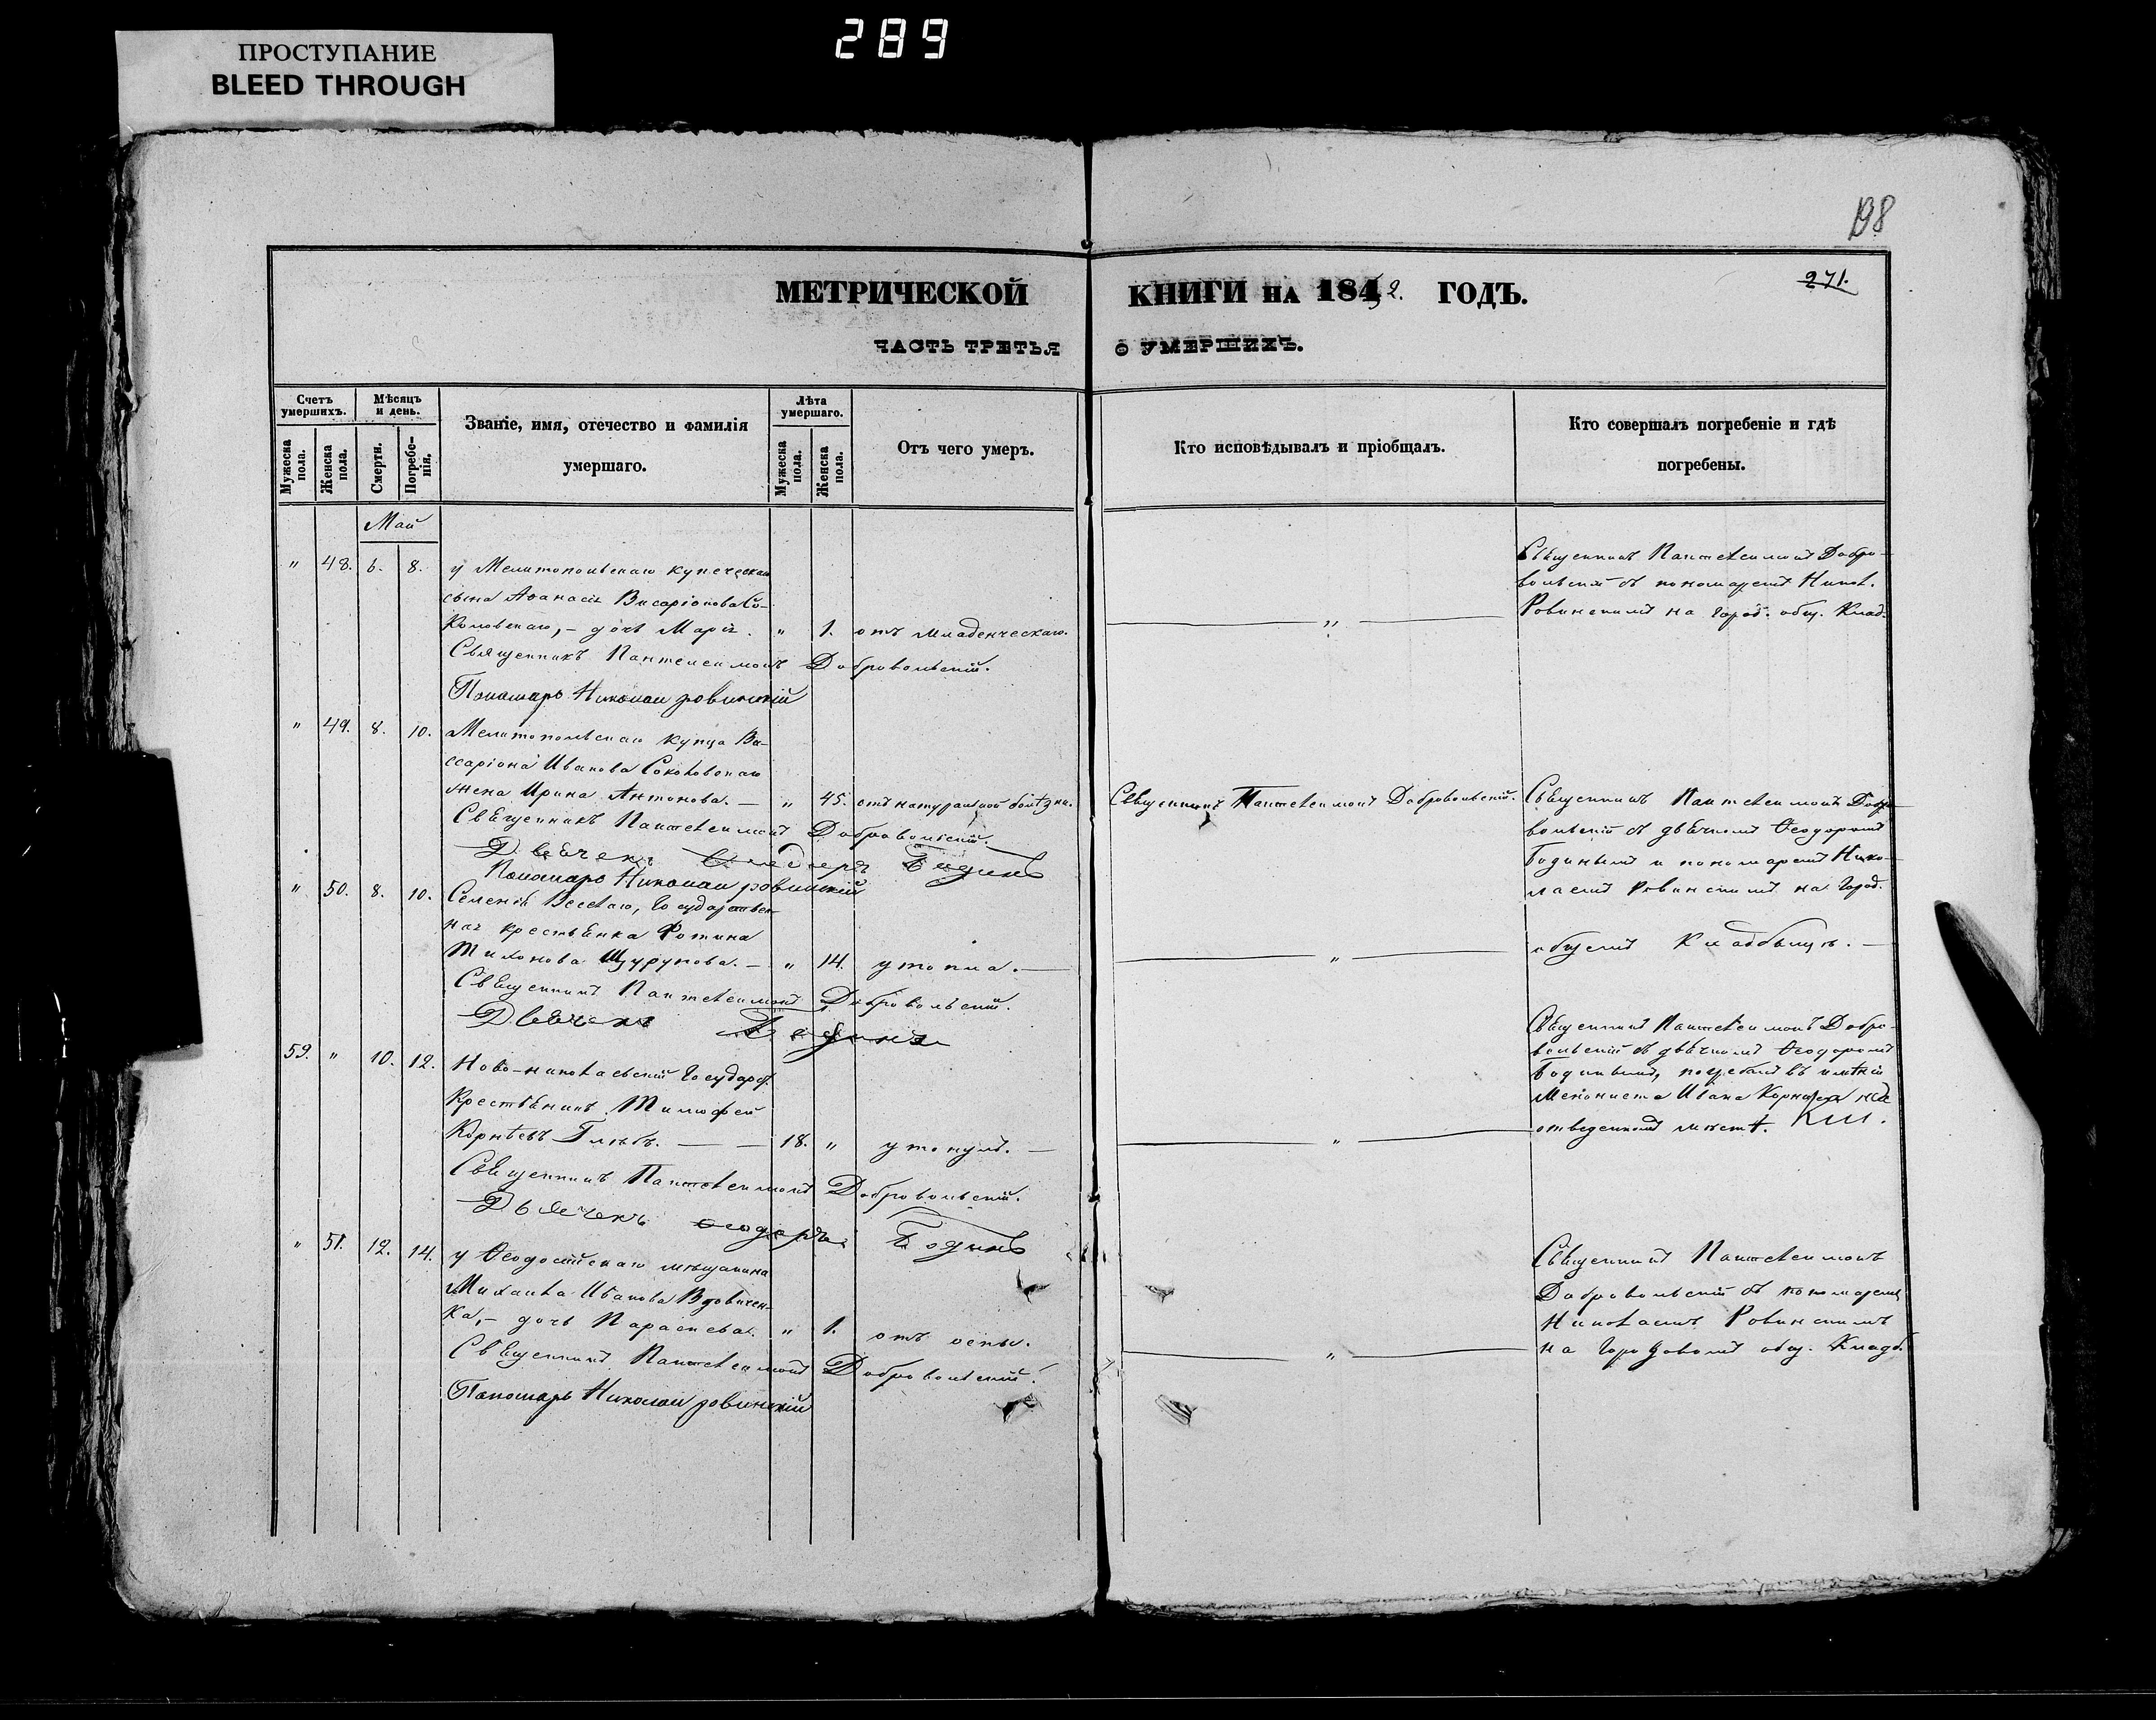 ПРОСТУПАНИЕ
BLEED THROUGH
289
198
271.
МЕТРИЧЕСКОЙ КНИГИ НА 1842. ГОДЪ.
ЧАСТЬ ТРЕТЬЯ О УМЕРШИХЪ.
Счетъ умершихъ.
Мужеска пола.
Женска пола.
Мѣсяцъ и день.
Смерти.
Погребе-нія.
Званіе, имя, отечество и фамилія
умершаго.
Лѣта умершаго.
Мужеска пола.
Женска пола.
Отъ чего умеръ.
Кто исповѣдывалъ и пріобщалъ.
Кто совершалъ погребеніе и гдѣ
погребены.
Май
" 48. 6. 8. у Мелитопольскаго купеческаго
сына Аѳанасія Висаріонова Со-
коловскаго, - дочь Марія. " 1. отъ младенческаго. "
Священникъ Пантелеимонъ Добровольскій.
Пономарь Николай Ровинскій
Священникъ Пантелеимонъ Добро-
вольскій съ пономаремъ Никол.
Ровинскимъ на город. общ. Клад.
" 49. 8. 10. Мелитопольскаго купца Ва-
ссаріона Иванова Соколовскаго
жена Ирина Антонова. — " 45. отъ натуральной болѣзни. Священникъ Пантелеимонъ Добровольскій.
Священникъ Пантелеимонъ Добровольскій.
Дьячекъ Бодинъ
Пономарь Николай Ровинскій
Священникъ Пантелеимонъ Добро-
вольскій съ дьячкомъ Ѳеодоромъ
Бодинымъ и пономаремъ Нико-
лаемъ Ровинскимъ на Город.
общемъ Кладбищѣ. —
" 50. 8. 10. Селенія Веселаго, Государствен-
ная крестьянка Фотина
Тихонова Щурупова. — " 14. утопла. — "
Священникъ Пантелеимонъ Добровольскій.
Дьячекъ Бодинъ
59. " 10. 12. Ново-николаевскій Государст.
Крестьянинъ Тимофей
Корнѣевъ — 18. " утонулъ. — "
Священникъ Пантелеимонъ Добровольскій.
Дьячекъ Ѳеодоръ Бодинъ
Священникъ Пантелеимонъ Добро-
вольскій съ дьячкомъ Ѳеодоромъ
Бодинымъ, погребенъ въ имѣніи
Менониста Ивана Корниса на
отведенномъ мѣстѣ.
" 51. 12. 14. у Ѳеодосійскаго мѣщанина
Михаила Иванова Вдовичен-
ка, - дочь Параскева. " 1. отъ оспы. "
Священникъ Пантелеимонъ Добровольскій.
Пономарь Николай Ровинскій
Священникъ Пантелеимонъ
Добровольскій съ пономаремъ
Николаемъ Ровинскимъ
на Городовомъ общ. Кладб.